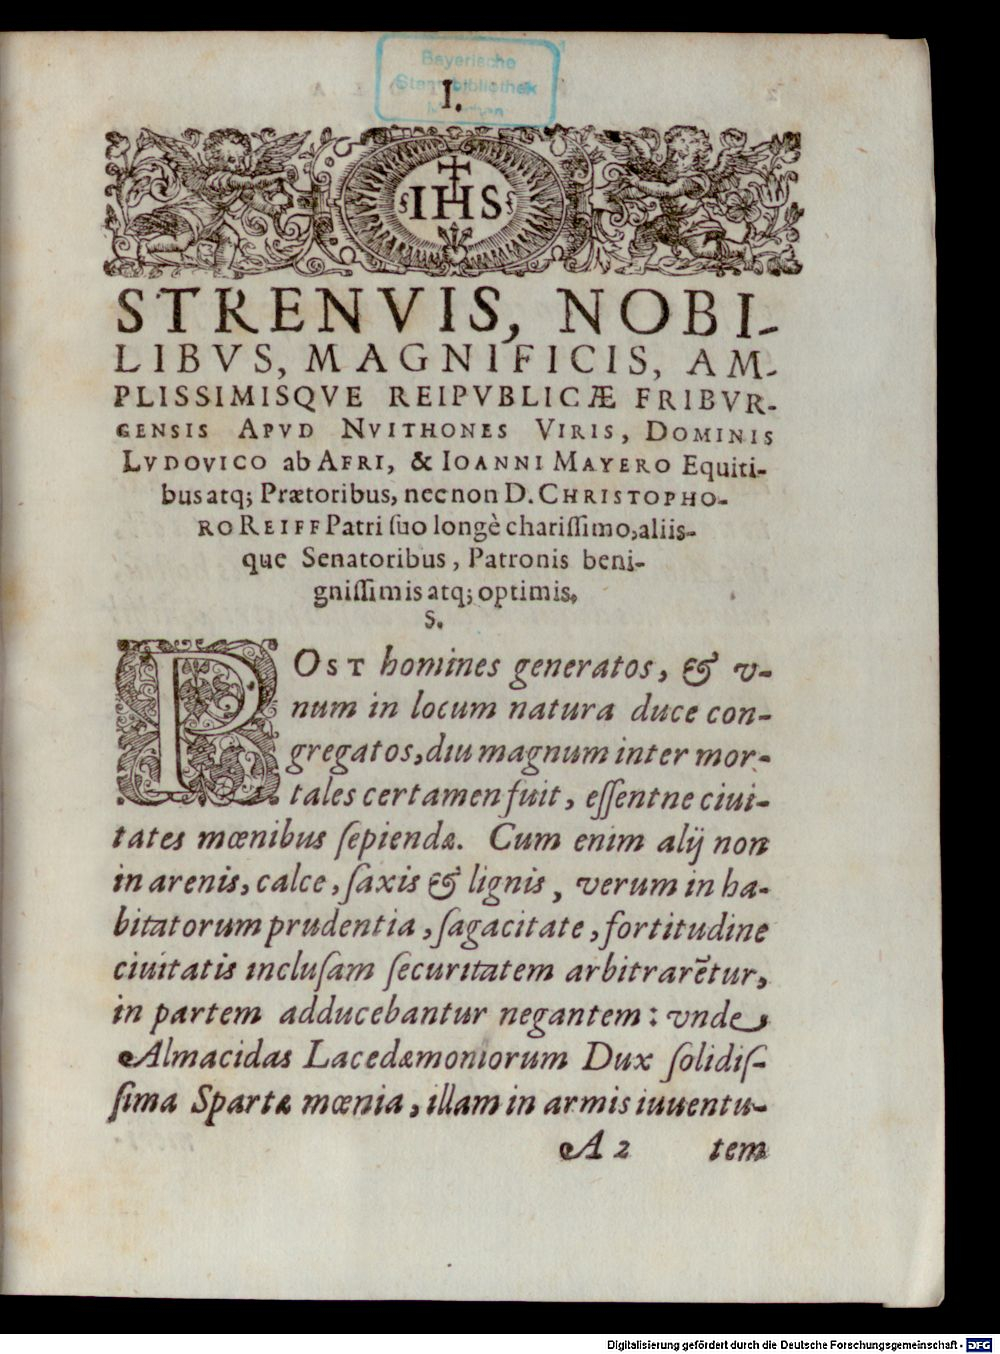 Bayerische
Staatsbibliothek
München
I.
IHS
STRENVIS, NOBI-
LIBVS, MAGNIFICIS, AM-
PLISSIMISQVE REIPVBLICÆ FRIBVR-
GENSIS APVD NVITHONES VIRIS, DOMINIS
LVDOVICO ab AFRI, & IOANNI MAYERO Equiti-
bus atq; Prætoribus, necnon D. CHRISTOPHO-
RO REIFF Patri ſuo longè chariſſimo, aliis-
que Senatoribus, Patronis beni-
gniſſimis atq; optimis.
S.
POST homines generatos, & v-
num in locum natura duce con-
gregatos, diu magnum inter mor-
tales certamen fuit, eſſentne ciui-
tates mœnibus ſepiendæ. Cum enim alij non
in arenis, calce, ſaxis & lignis, verum in ha-
bitatorum prudentia, ſagacitate, fortitudine
ciuitatis incluſam ſecuritatem arbitrarẽtur,
in partem adducebantur negantem: vnde
Almacidas Lacedæmoniorum Dux ſolidiſ-
ſima Spartæ mœnia, illam in armis iuuentu-
A 2 tem
Digitalisierung gefördert durch die Deutsche Forschungsgemeinschaft - DFG